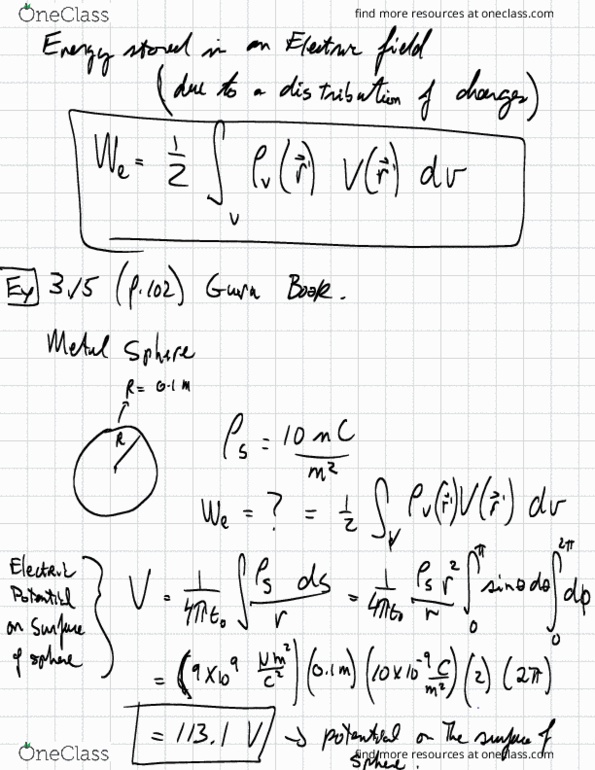 OneClass
find more resources at oneclass.com
Energy stored in an Electric field
(due to a distribution of charges)
We = 1/2 ∫v ρv(r⃗') V(r⃗') dv
Ex 3.15 (p.102) Guru Book.
Metal Sphere
R = 0.1 m
R
ρs = 10 nC/m²
We = ? = 1/2 ∫v ρv(r⃗')V(r⃗') dv
Electric
Potential
on Surface
of sphere
V = 1/4πε₀ ∫ ρs ds/r = 1/4πε₀ ρs r²/r ∫₀^π sinθ dθ ∫₀^2π dφ
= (9 X 10⁹ Nm²/C²) (0.1m) (10 x 10⁻⁹ C/m²) (2) (2π)
= 113.1 V → potential on the surface of
sphere.
OneClass
find more resources at oneclass.com